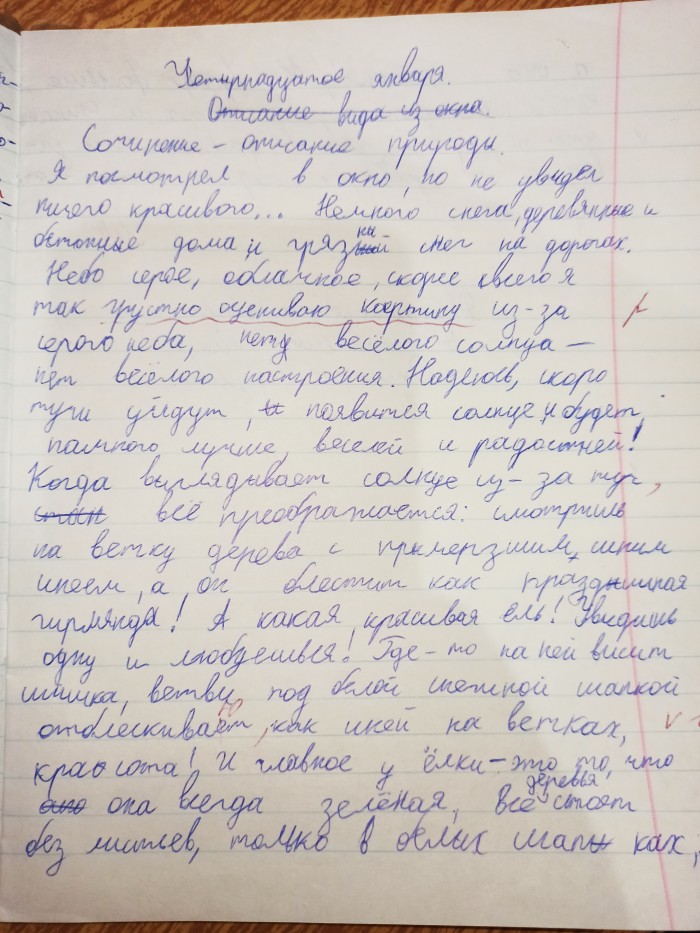 Четырнадцатое января.
Описание вида из окна.
Сочинение – описание природы.
Я посмотрел в окно, но не увидел
ничего красивого... Немного снега, деревянные и
бетонные дома и грязный снег на дорогах.
Небо серое, облачное, скорее всего я
так грустно оцениваю картину из-за
серого неба, нету весёлого солнца –
нет весёлого настроения. Надеюсь, скоро
тучи уйдут, появится солнце и будет
намного лучше, веселей и радостней!
Когда выглядывает солнце из-за туч,
всё преображается: смотришь
на ветку дерева с примерзшим, синим
инеем, а он блестит как праздничная
гирлянда! А какая, красивая ель! Увидишь
одну и любуешься! Где-то на ней висит
шишка, ветви под белой снежной шапкой
отблескивают, как иней на ветках,
красота! И главное у ёлки – это то, что
она всегда зелёная, все деревья стоят
без листьев, только в белых шапках,